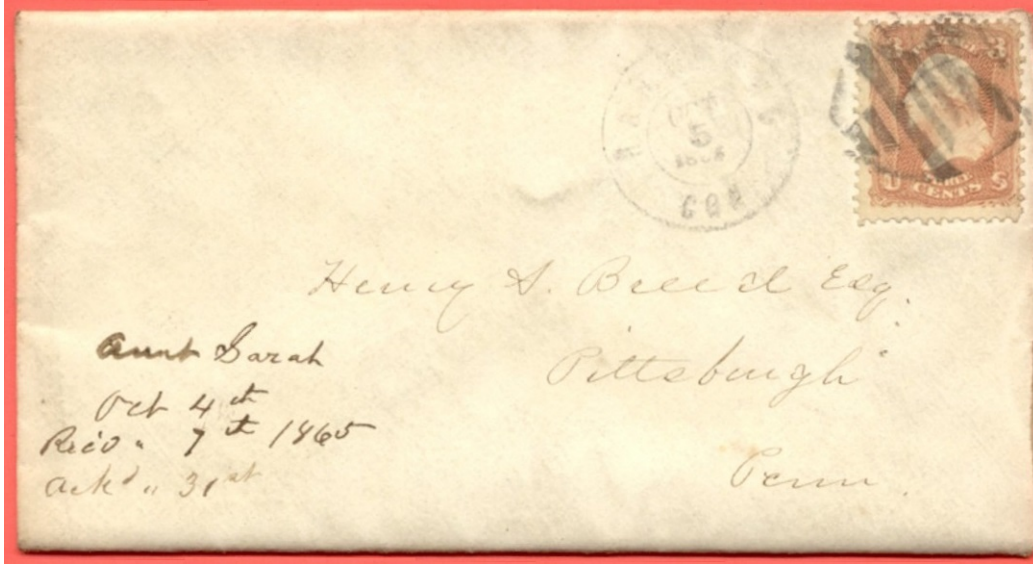 OCT
5
CON
THREE
CENTS
U S
Henry S. Breed Esq.
Pittsburgh
Penn.
Aunt Sarah
Oct 4th
Rec'd " 7th 1865
Ack'd " 31st